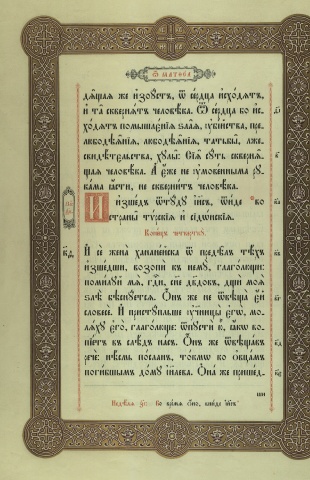 Ѿ МАТѲЕА
дѧщаѧ же изоустъ, ѿ сердца исходѧтъ,
и та сквернѧтъ человѣка. Ѿ сердца бо ис-
ходѧтъ помышлєнїѧ злаѧ, оубїйства, пре-
любодѣѧнїѧ, любодѣѧнїѧ, татьбы, лже-
свидѣтєльства, хулы: Сїѧ суть сквернѧ-
щаѧ человѣка. А єже не оумовенныма ру-
кама ѩсти, не сквернитъ человѣка.
Ишедъ ѿтуду іисъ, ѿиде во
страны турскїѧ и сїдѡнскїѧ.
Конецъ четвертку.
И се жена хананейска ѿ предѣлъ тѣхъ
изшедши, возопи къ нему, глаголющи:
помилуй мѧ, гди, сне двдовъ, дщи моѧ
злѣ бѣснуетсѧ. Онъ же не ѿвѣща ей
словесе. И приступльше оученицы єгѡ, мо-
лѧху єго, глаголюще: ѿпусти ю, ѩкѡ во-
пїетъ въ слѣдъ насъ. Онъ же ѿвѣщавъ
рече: нѣсмь посланъ, токмѡ ко овцамъ
погибшымъ дому їилева. Она же пришед-
ши
Недѣлѧ зі: Во времѧ оно, вниде іисъ